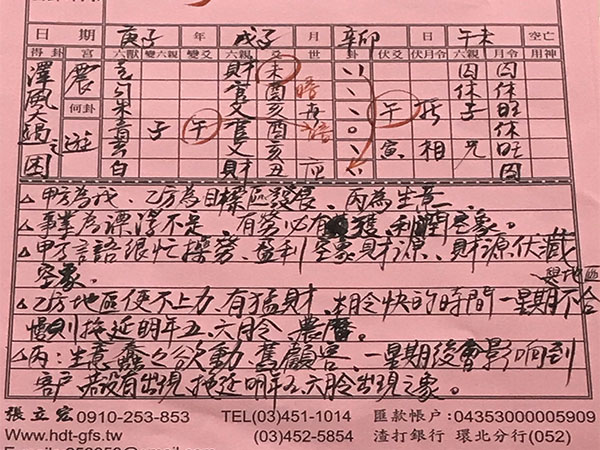 日期 庚子 年 戊子 月 辛卯 日 午未 空亡
得卦 宮 六獸 變六親 變爻 六親 爻 世 卦 伏爻 伏月令 六親 月令 用神
澤風大過之困 震 財 未 囚 囚
勾 官 酉 休 休
何卦 朱 父 亥 午 子 旺
遊 青 子 午 官 酉 休
玄 父 亥 寅 相 兄 旺
白 財 丑 囚
△甲方為我、乙方為目標區發展、丙為生意、
△事業為漂浮不定、有勞必有獲、利潤空象。
△甲方言語很忙操勞、盈利空象財源、財源伏藏
空象。
△乙方地區使不上力、有猛財、本月令快的時間一星期不合
與地區
慢則拖延明年五、六月令、農曆。
△丙:生意蠢蠢欲動、舊顧客、一星期後會影响到
客戶若沒有出現拖延明年五六月令出現之象。
張立宏 0910-253-853 TEL(03)451-1014 匯款帳戶:04353000005909
Www.hdt-gfs.tw (03)452-5854 渣打銀行 環北分行(052)